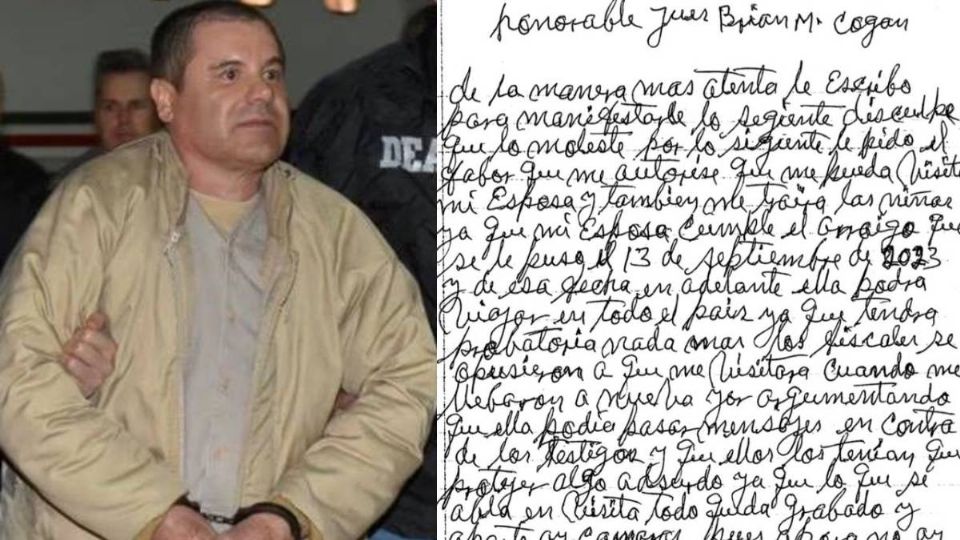 DEA
honorable Jues Brian M. Cogan
de la manera mas atenta le Escribo
para manifestarle lo segiente disculpe
que lo moleste por lo sigiente le pido el
fabor que me autorise que me pueda Visita
mi Esposa y tambien me traiga las niñas
ya que mi Esposa cumple el arraigo que
se le puso el 13 de septiembre de 2023
y de esa fecha en adelante ella podra
Viajar en todo el pais ya que tendra
probatoria nada mas los fiscales se
opusieron a que me Visitara cuando me
llebaron a nueba yor argumentando
que ella podia pasar mensajes en contra
de los testigos y que ellos los tenian que
protejer algo adsurdo ya que lo que se
abla en Visita todo queda grabado y
aparte ay camaras pues ahora no ay